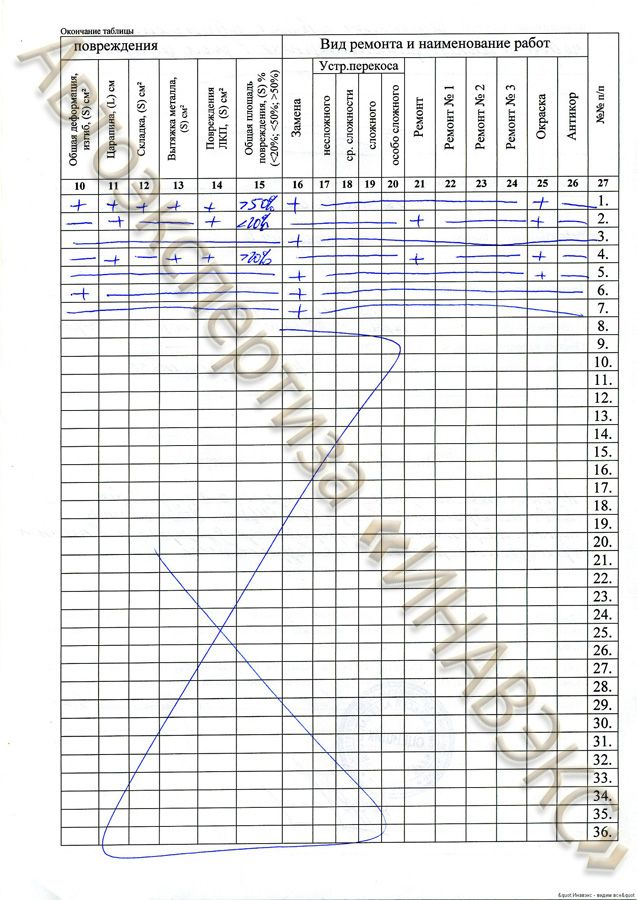 Окончание таблицы
повреждения Вид ремонта и наименование работ
Устр.перекоса
Общая деформация, изгиб, (S) см²
Царапина, (L) см
Складка, (S) см²
Вытяжка металла, (S) см²
Повреждения ЛКП, (S) см²
Общая площадь повреждения, (S) % (<20%; <50%; >50%)
Замена
несложного
ср. сложности
сложного
особо сложного
Ремонт
Ремонт № 1
Ремонт № 2
Ремонт № 3
Окраска
Антикор
№№ п/п
10 11 12 13 14 15 16 17 18 19 20 21 22 23 24 25 26 27
+ + + + + >50% + — + — 1.
— + — + <20% — + — + — 2.
— + — 3.
— + — + + >20% — + — + — 4.
— + — + — 5.
+ — + — 6.
— + — 7.
8.
9.
10.
11.
12.
13.
14.
15.
16.
17.
18.
19.
20.
21.
22.
23.
24.
25.
26.
27.
28.
29.
30.
31.
32.
33.
34.
35.
36.
Автоэкспертиза «ИНАВЭКС»
&quot;Инавэкс - видим все&quot